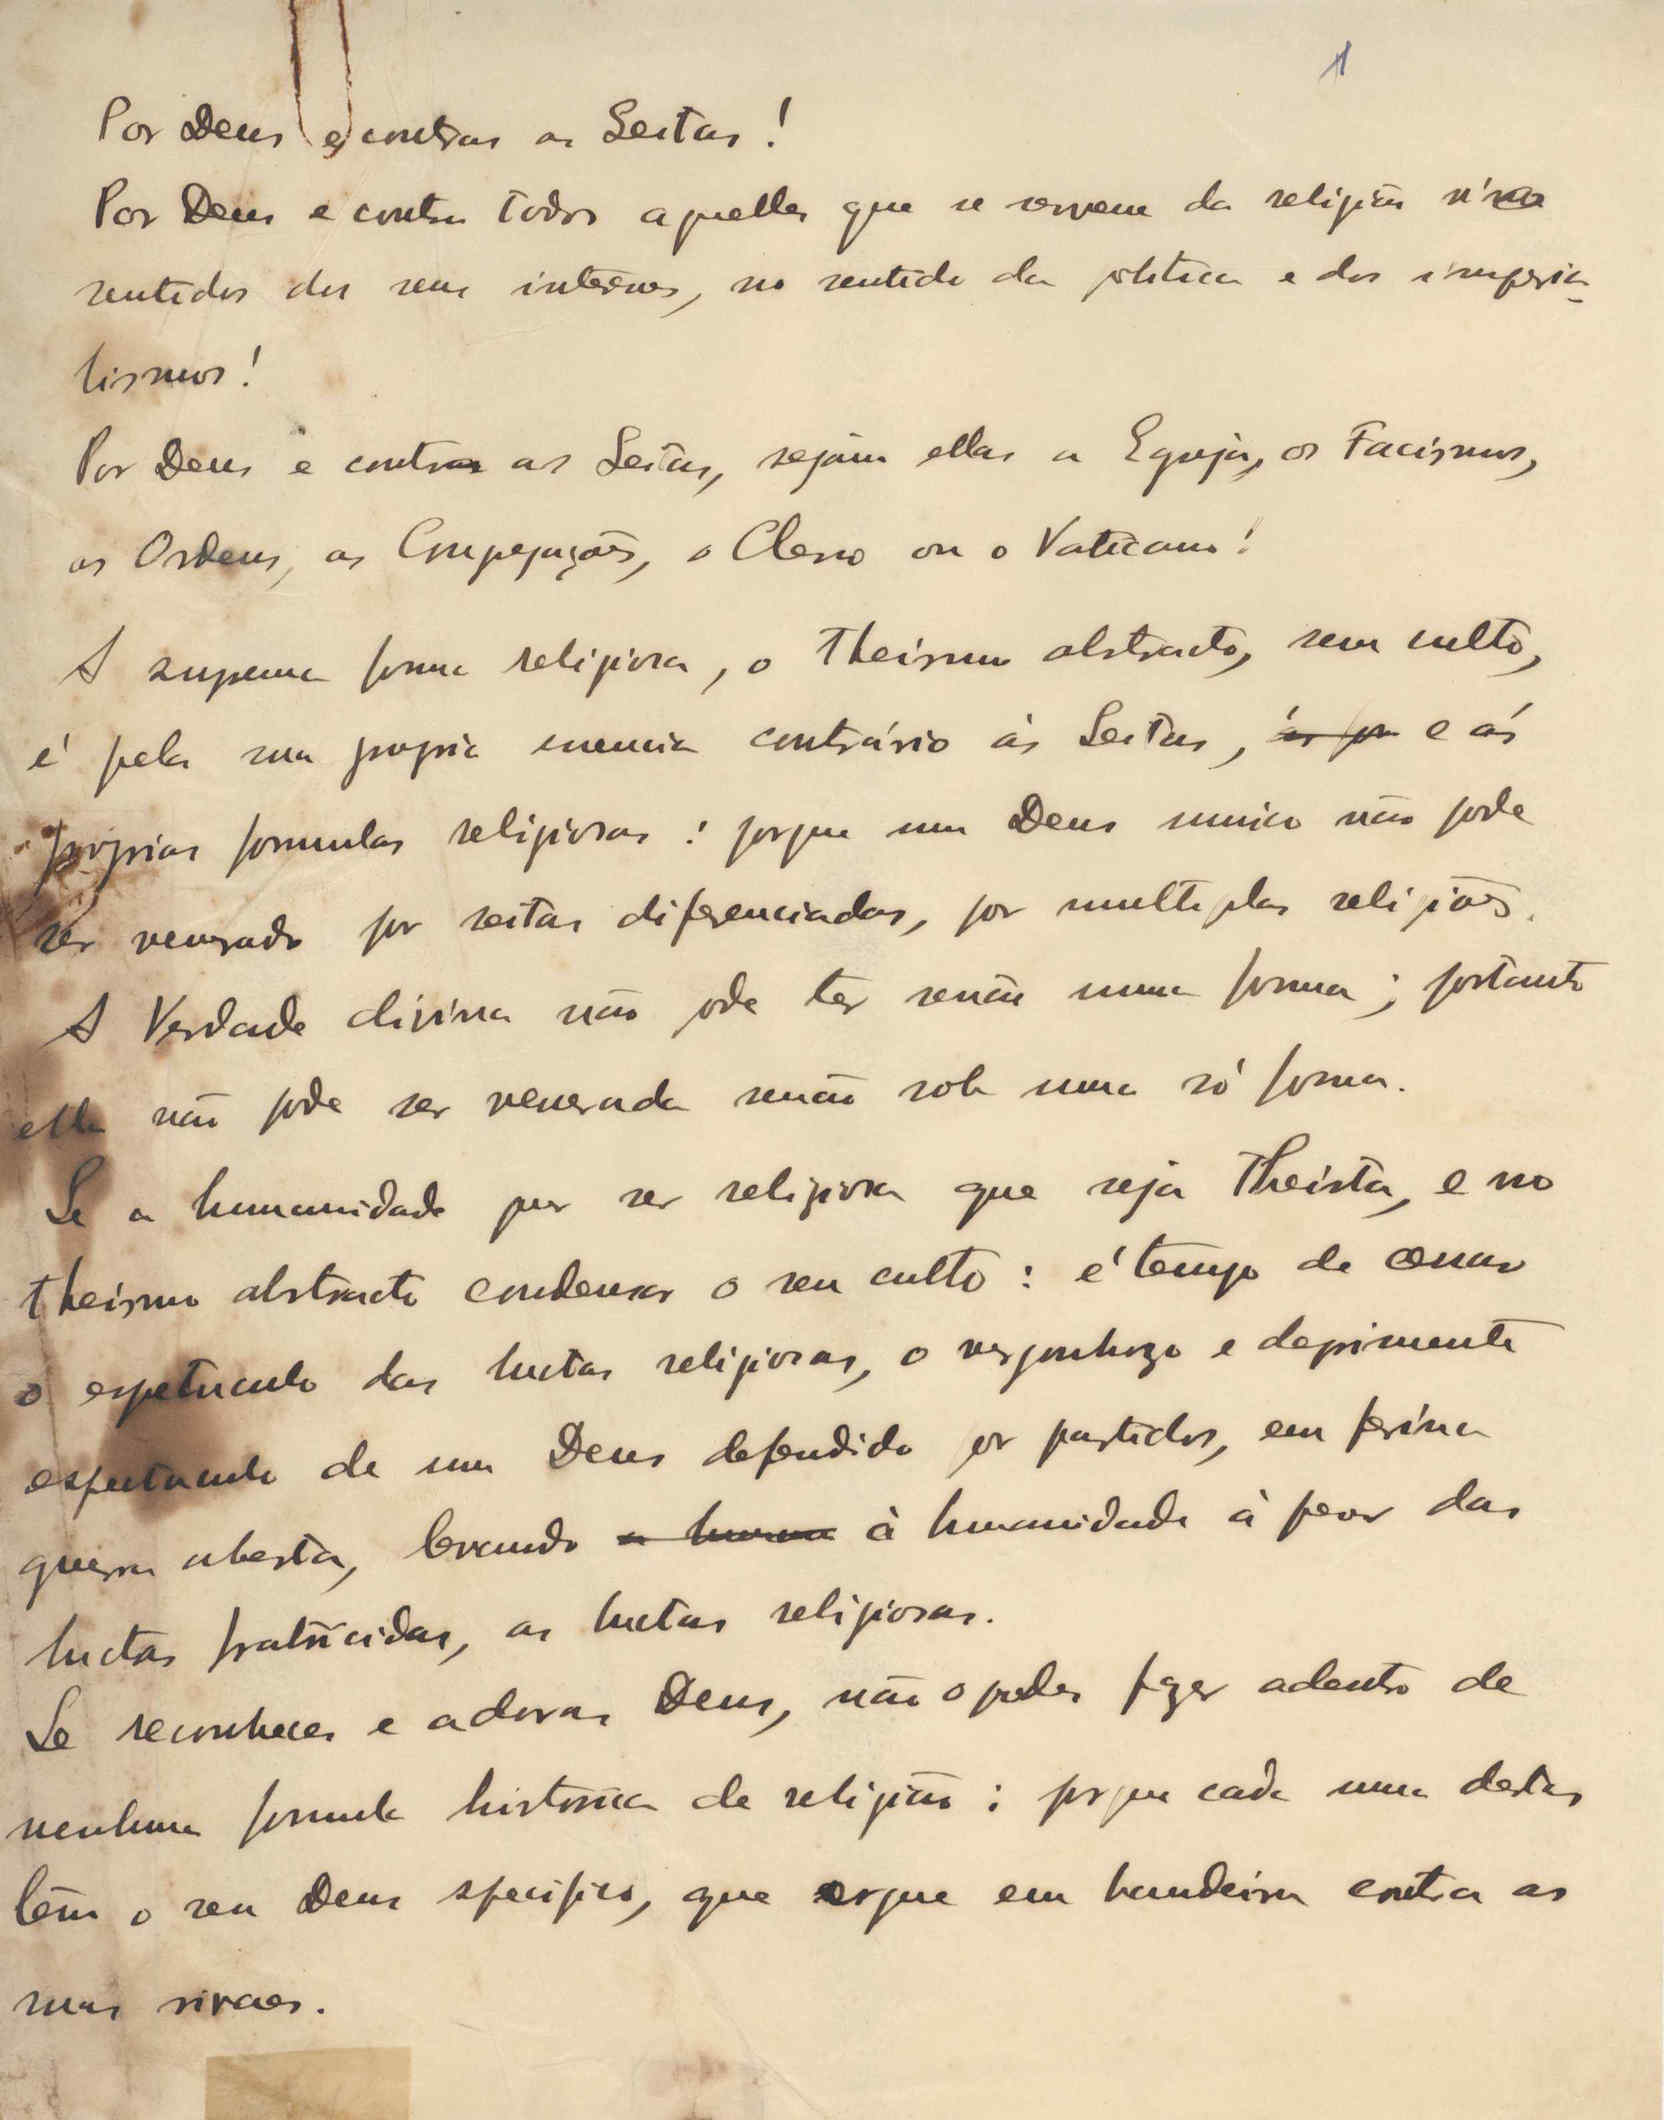 1
Por Deus e contra as Seitas!
Por Deus e contra todos aquelles que se servem da religião
sentidos dos seus interesses, no sentido da politica e dos imperia-
lismos!
Por Deus e contra as Seitas, sejam ellas a Egreja, os Facismos,
as Ordens, as Congregações, o Clero ou o Vaticano!
A suprema forma religiosa, o Theismo abstracto, sem culto,
é pela sua propria essencia contrário ás Seitas, e ás
proprias formulas religiosas: porque um Deus unico não pode
ser venerado por seitas diferenciadas, por multiplas religiões.
A Verdade divina não pode ter senão uma forma; portanto
ella não pode ser venerada senão sob uma só forma.
Se a humanidade quer ser religiosa que seja Theista, e no
theismo abstracto condensar o seu culto: é tempo de cessar
o espetaculo das luctas religiosas, o vergonhozo e deprimente
espectaculo de um Deus defendido por partidos, em ferina
guerra aberta, levando à humanidade à peor das
luctas fratricidas, as luctas religiosas.
Se reconheces e adoras Deus, não o podes fazer adentro de
nenhuma formula historica de religião: porque cada uma destas
têm o seu Deus specifico, que ergue em bandeira contra as
suas rivaes.